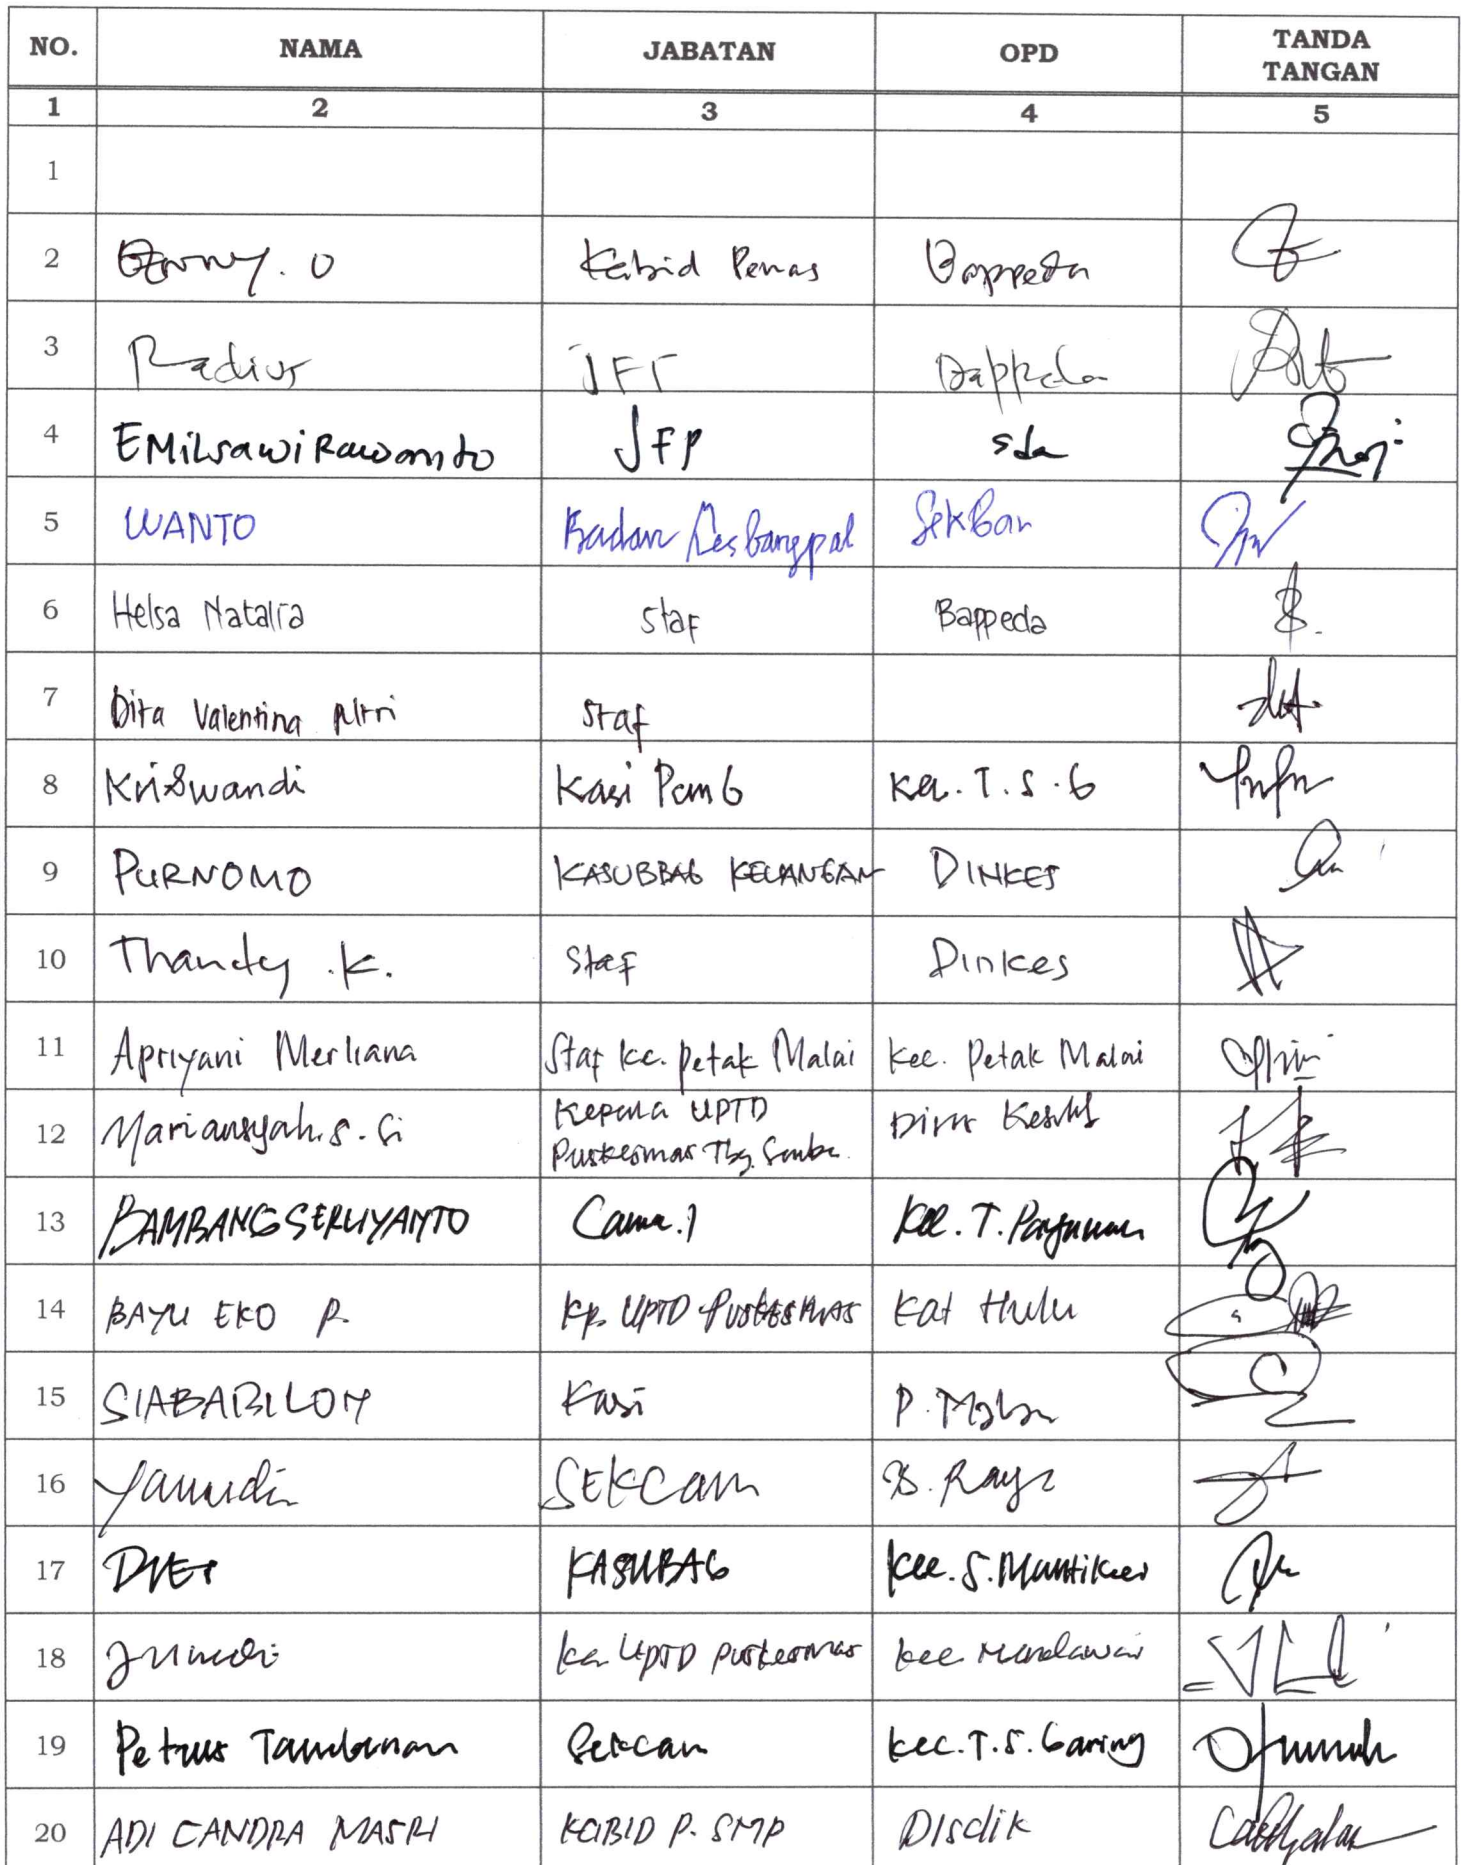 NO. NAMA JABATAN OPD TANDA TANGAN
1 2 3 4 5
1
2 O Kabid Bappeda
3 Radius JFT Bappeda
4 EMilsawi Rawanto JFP sda
5 WANTO Badan Kesbangpol SekBan
6 Helsa Natalia staf Bappeda
7 Dita Valentina Putri Staf
8 KriSwandi Kasi Kec. T. S. G
9 PURNOMO KASUBBAG KEUANGAN DINKES
10 Thandy .K. Staf Dinkes
11 Apriyani Merliana Staf Kc. Petak Malai Kec. Petak Malai
12 Mariansyah. S. Si Kepala UPTD Puskesmas Tbg. Dinas
13 BAMBANG SERLIYANTO Camat Kec. T. Payawan
14 BAYU EKO P. Kp. UPTD PUSKESMAS Kat Hulu
15 SIABABILON Kasi P. Malai
16 Yamudi SEKCAM Raya
17 KASUBAG Kec. S. Mantikei
18 Ka. UPTD Puskesmas Kec Mendawai
19 Petrus Tambunan Sekcam Kec. T. S. Garing
20 ADI CANDRA MASRI KABID P. SMP Disdik